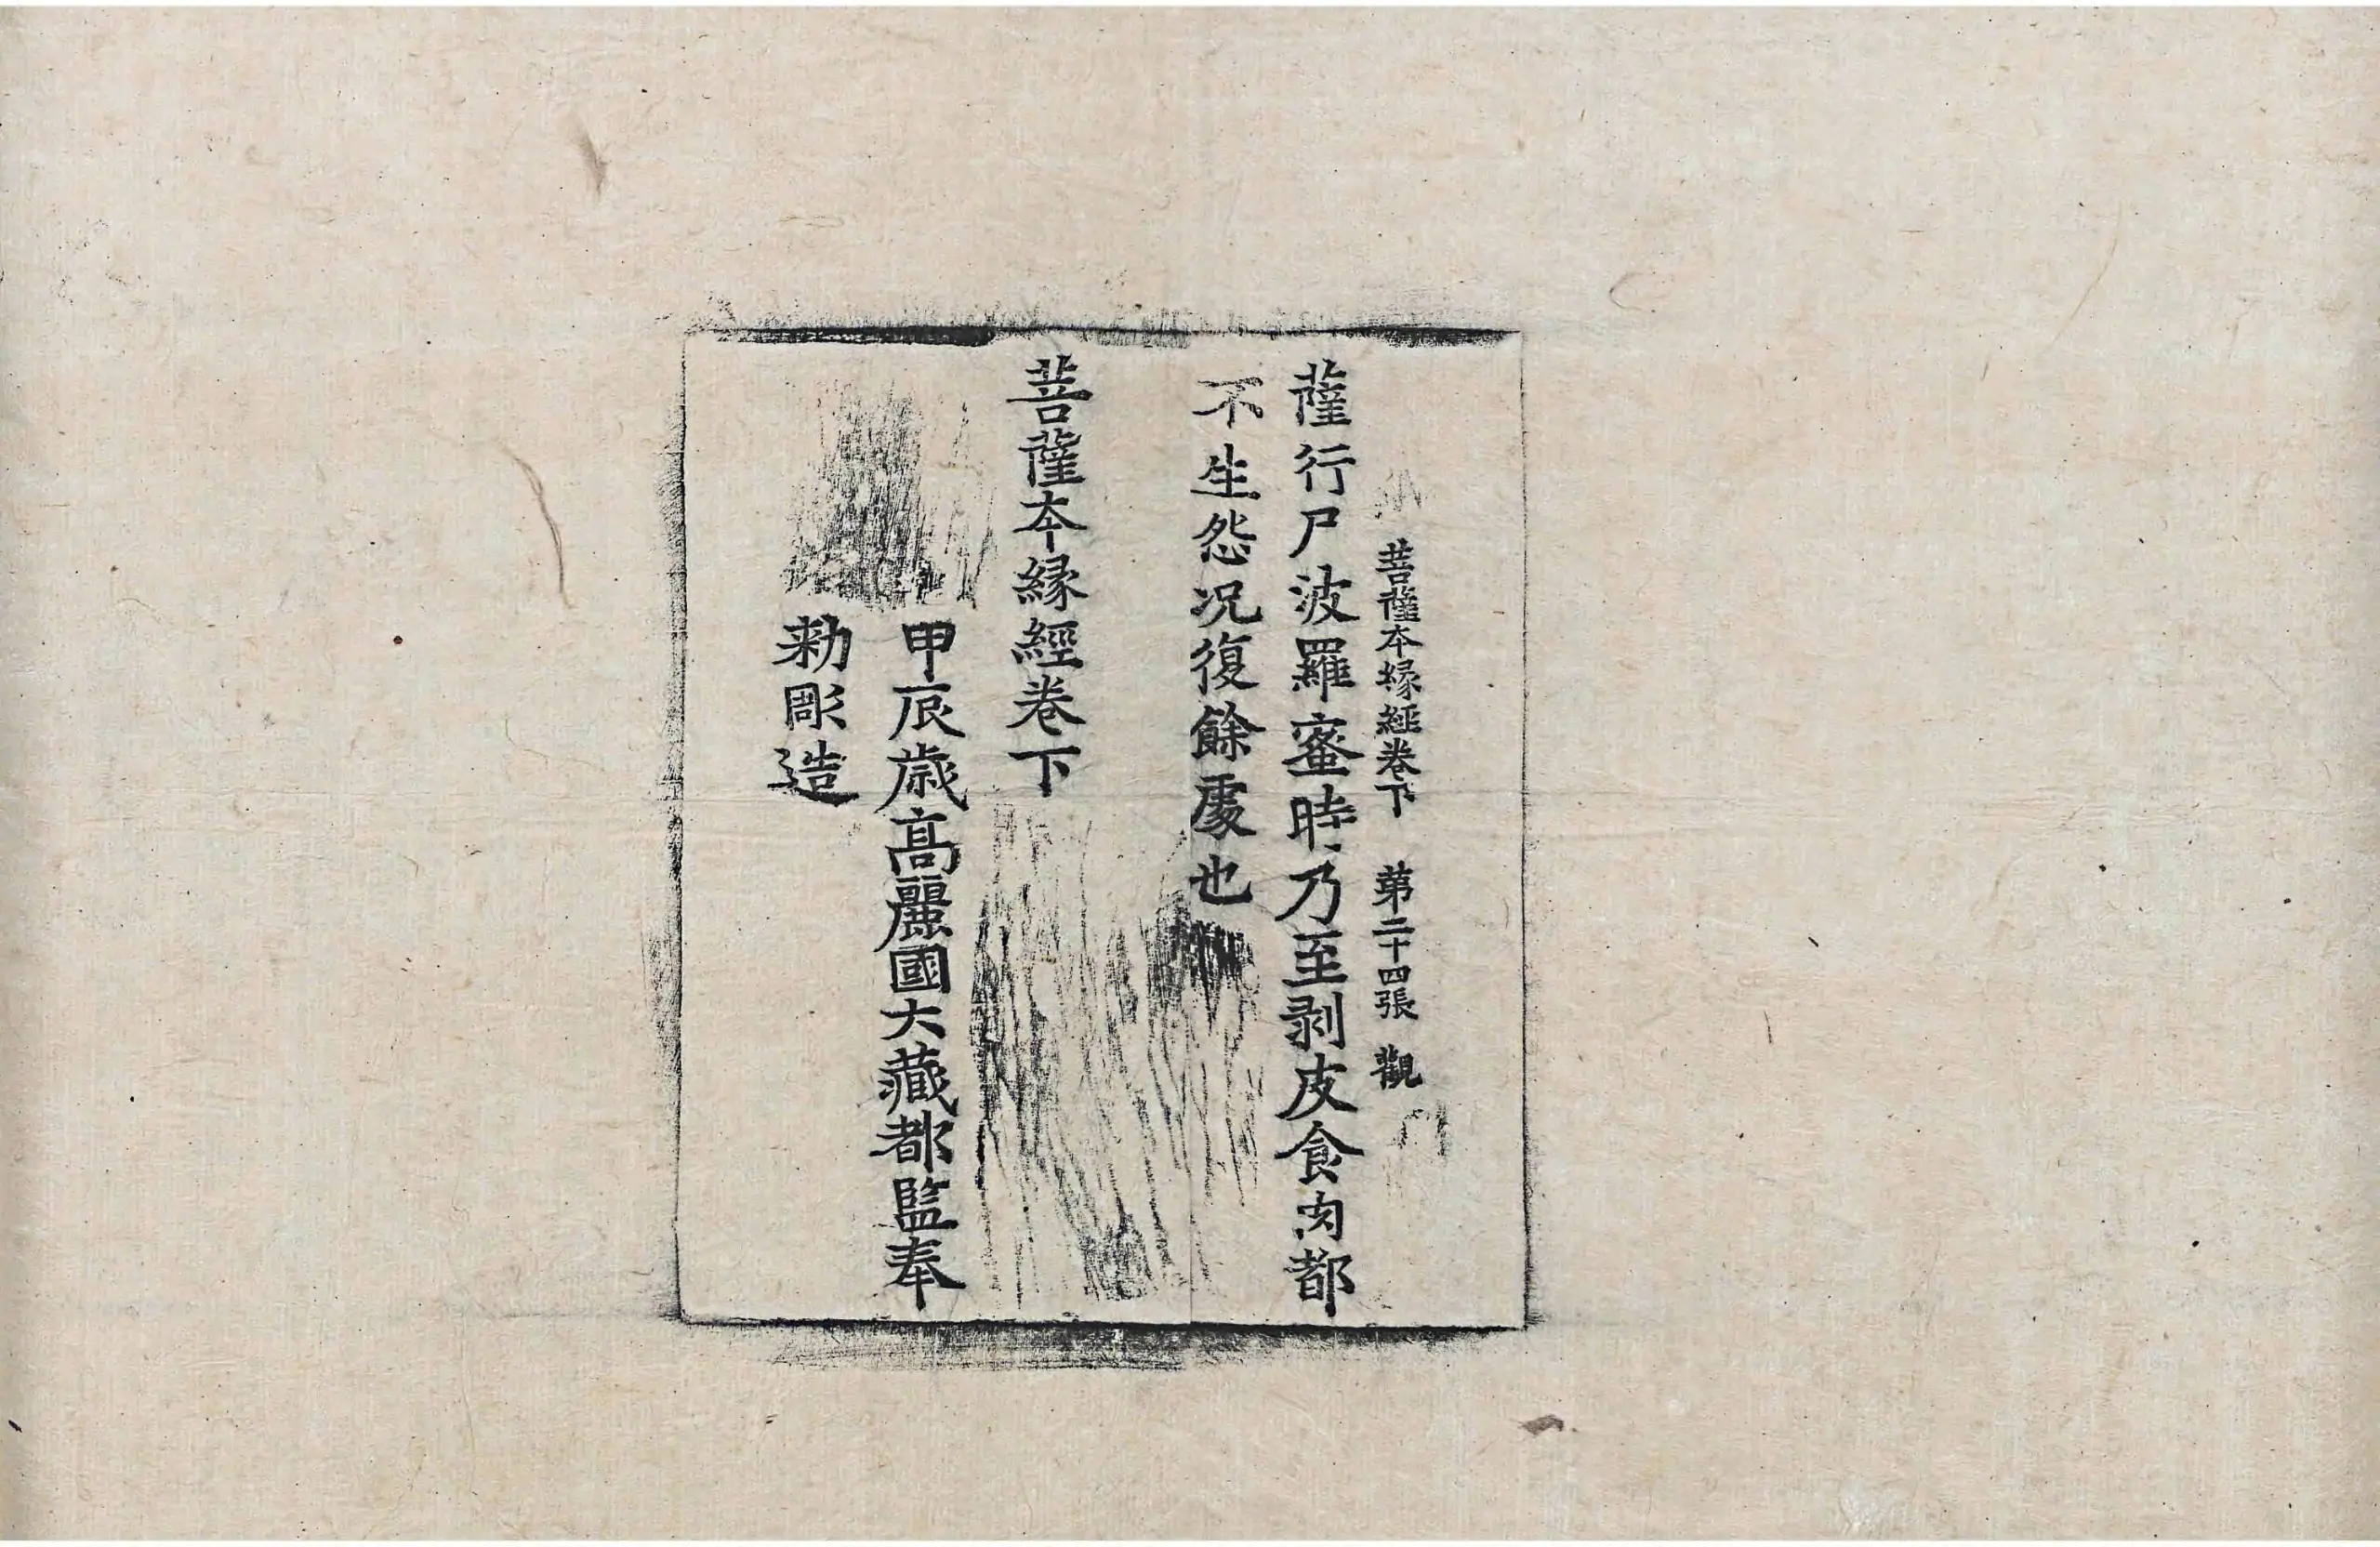 菩薩本緣經卷下 第二十四張 觀
薩行尸波羅蜜時乃至剥皮食肉都
不生怨况復餘處也
菩薩本緣經卷下
甲辰歲高麗國大藏都監奉
勅彫造